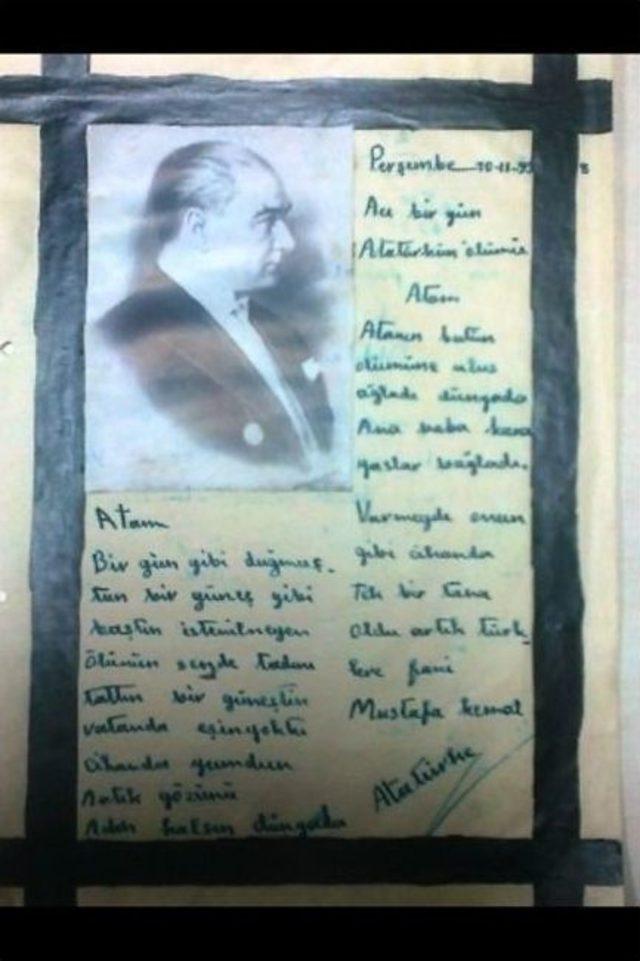 Perşembe 10-11-93
Acı bir gün
Atatürkün ölümü
Atam
Atanın bütün
ölümüne ulus
ağladı dünyada
Ana baba kara
yaslar bağladı.
Varmıydı
gibi cihanda
Tek bir tane
oldu artık türk
lere fani
Mustafa kemal
Atatürk
Atam
Bir gün gibi doğmuş.
tun bir güneş gibi
battın istenilmeyen
ölümün sezde tadını
tattın bir güneştin
vatanda eşin yoktu
cihanda yumdun
Artık gözünü
Adın kalsın dünyada